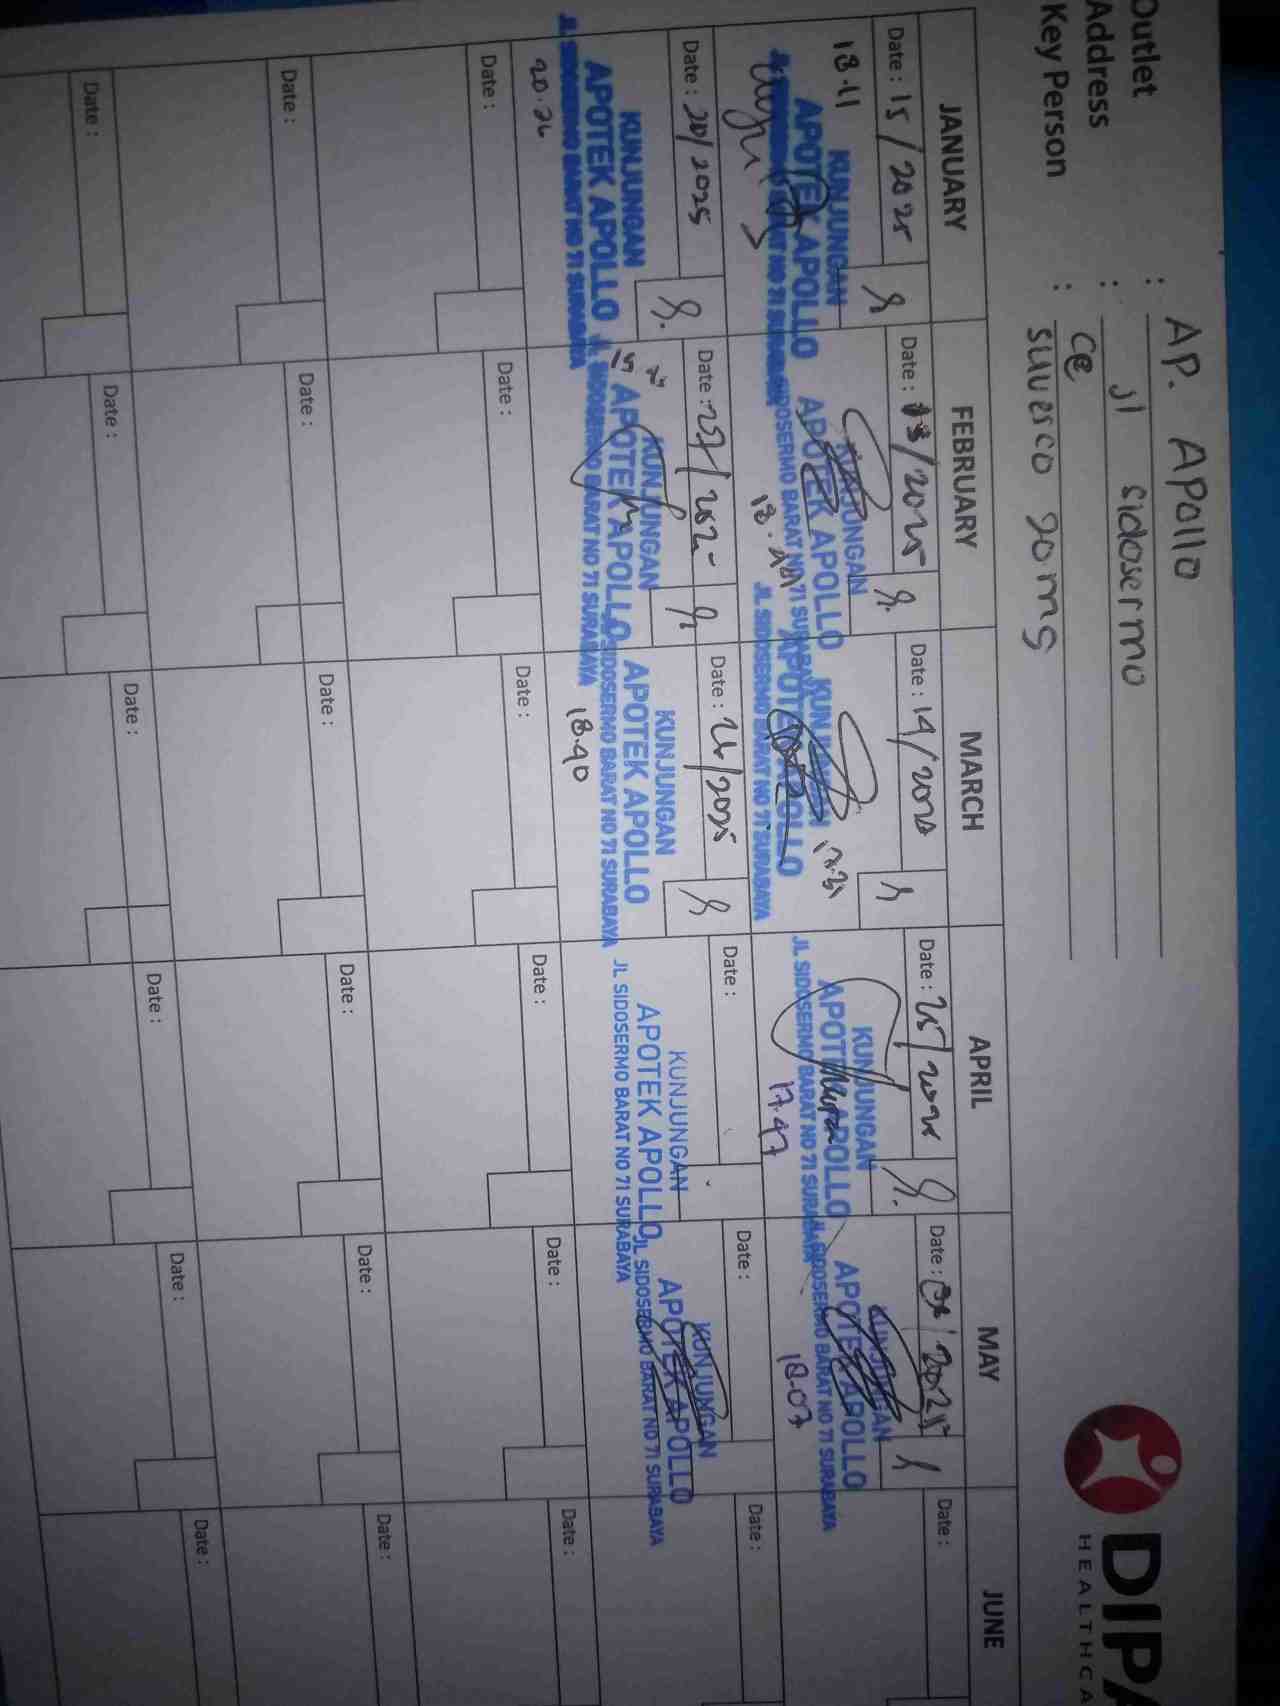 Outlet : AP. Apollo
Address : Jl Sidosermo
Key Person : CE
suvesco 20mg
DIPA
HEALTHCA
JANUARY FEBRUARY MARCH APRIL MAY JUNE
Date : 15/2025
18.11
KUNJUNGAN
APOTEK APOLLO
Date : 13/2025
KUNJUNGAN
APOTEK APOLLO
JL SIDOSERMO BARAT NO 71 SURABAYA
Date : 14/2025
KUNJUNGAN
APOTEK APOLLO
JL SIDOSERMO BARAT NO 71 SURABAYA
Date : 25/2025
KUNJUNGAN
APOTEK APOLLO
JL SIDOSERMO BARAT NO 71 SURABAYA
17.47
Date : 08/2025
KUNJUNGAN
APOTEK APOLLO
JL SIDOSERMO BARAT NO 71 SURABAYA
18.07
Date :
Date : 20/2025
KUNJUNGAN
APOTEK APOLLO
JL SIDOSERMO BARAT NO 71 SURABAYA
20.26
Date :
KUNJUNGAN
APOTEK APOLLO
JL SIDOSERMO BARAT NO 71 SURABAYA
Date : 26/2025
KUNJUNGAN
APOTEK APOLLO
JL SIDOSERMO BARAT NO 71 SURABAYA
18.40
Date :
KUNJUNGAN
APOTEK APOLLO
JL SIDOSERMO BARAT NO 71 SURABAYA
Date :
KUNJUNGAN
APOTEK APOLLO
JL SIDOSERMO BARAT NO 71 SURABAYA
Date :
Date : Date : Date : Date : Date : Date :
Date : Date : Date : Date : Date : Date :
Date : Date : Date : Date : Date : Date :